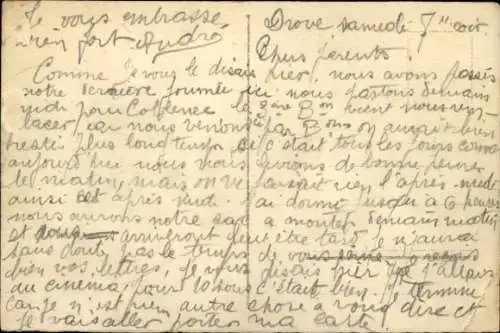 Je vous embrasse
bien fort André
Drove samedi 7 soir
Chers parents
Comme je vous le disais hier, nous avons passés
notre dernière journée ici nous partons demain
midi pour Coblence la 9ème Bon vient nous rem-
placer, car nous Bons on aurait bien
resté plus long temps si c'était tous les jours comme
aujourd'hui nous nous de bonne heure
le matin, mais on ne faisait rien l'après-midi
ainsi cet après midi j'ai dormi jusqu'à 6 heures
nous aurons notre sac a monter demain matin
et arriveront peut être tard je n'aurai
sans doute pas le temps de
bien vos lettres. Je vous disais hier que j'allais
au cinéma, pour 10 sous c'était bien. Je termine
car je n'est rien autre chose a vous dire et
je vais aller porter ma carte